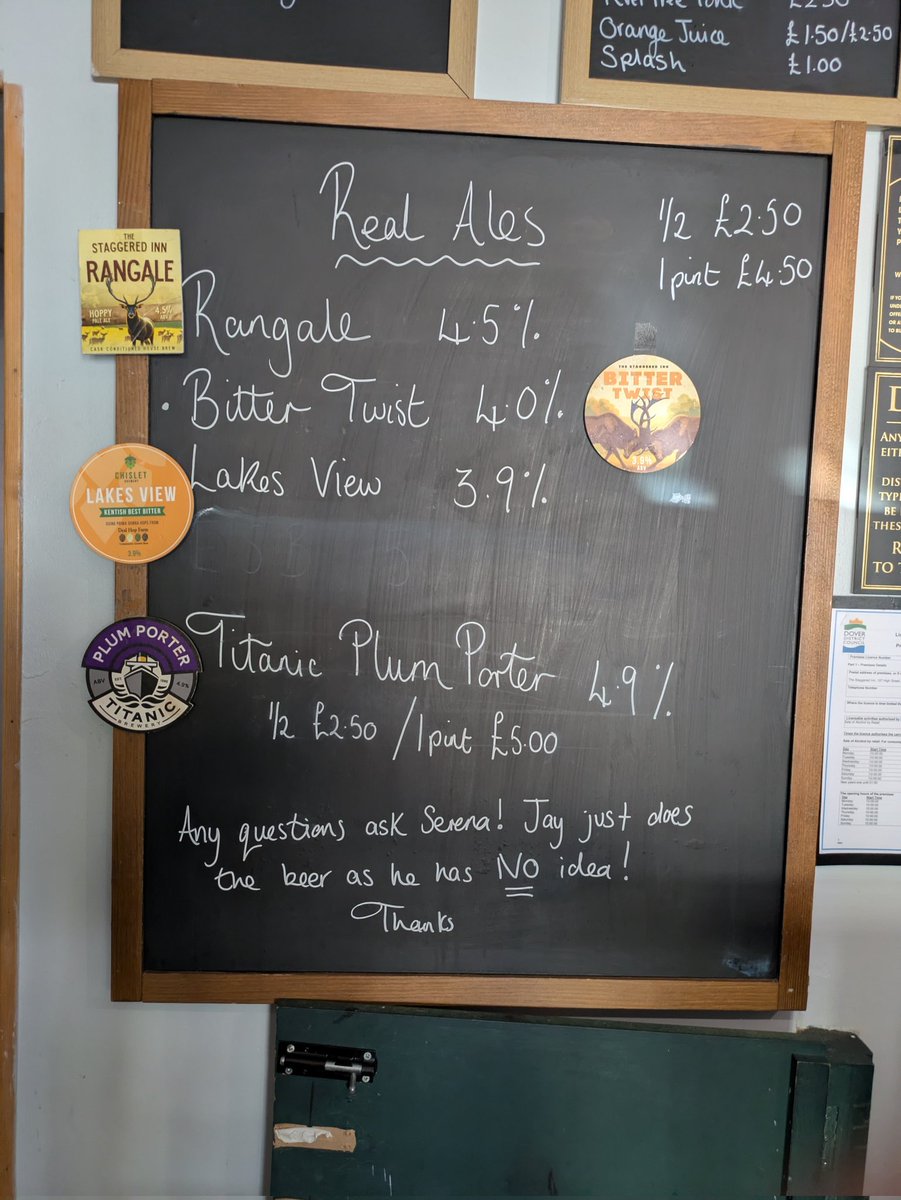 £2.50
Orange Juice £1.50/£2.50
Splash £1.00
Real Ales
1/2 £2.50
1 pint £4.50
THE
STAGGERED INN
RANGALE
HOPPY
PALE ALE
4.5%
ABV
CASK CONDITIONED HOUSE BREW
Rangale 4.5%
· Bitter Twist 4.0%
THE STAGGERED INN
BITTER
TWIST
3.9%
ABV
Lakes View 3.9%
CHISLET
BREWERY
LAKES VIEW
KENTISH BEST BITTER
3.9%
Titanic Plum Porter 4.9%
PLUM PORTER
ABV
4.9%
TITANIC
BREWERY
1/2 £2.50 / 1 pint £5.00
Any questions ask Serena! Jay just does
the beer as he has NO idea!
Thanks
DOVER
DISTRICT
COUNCIL